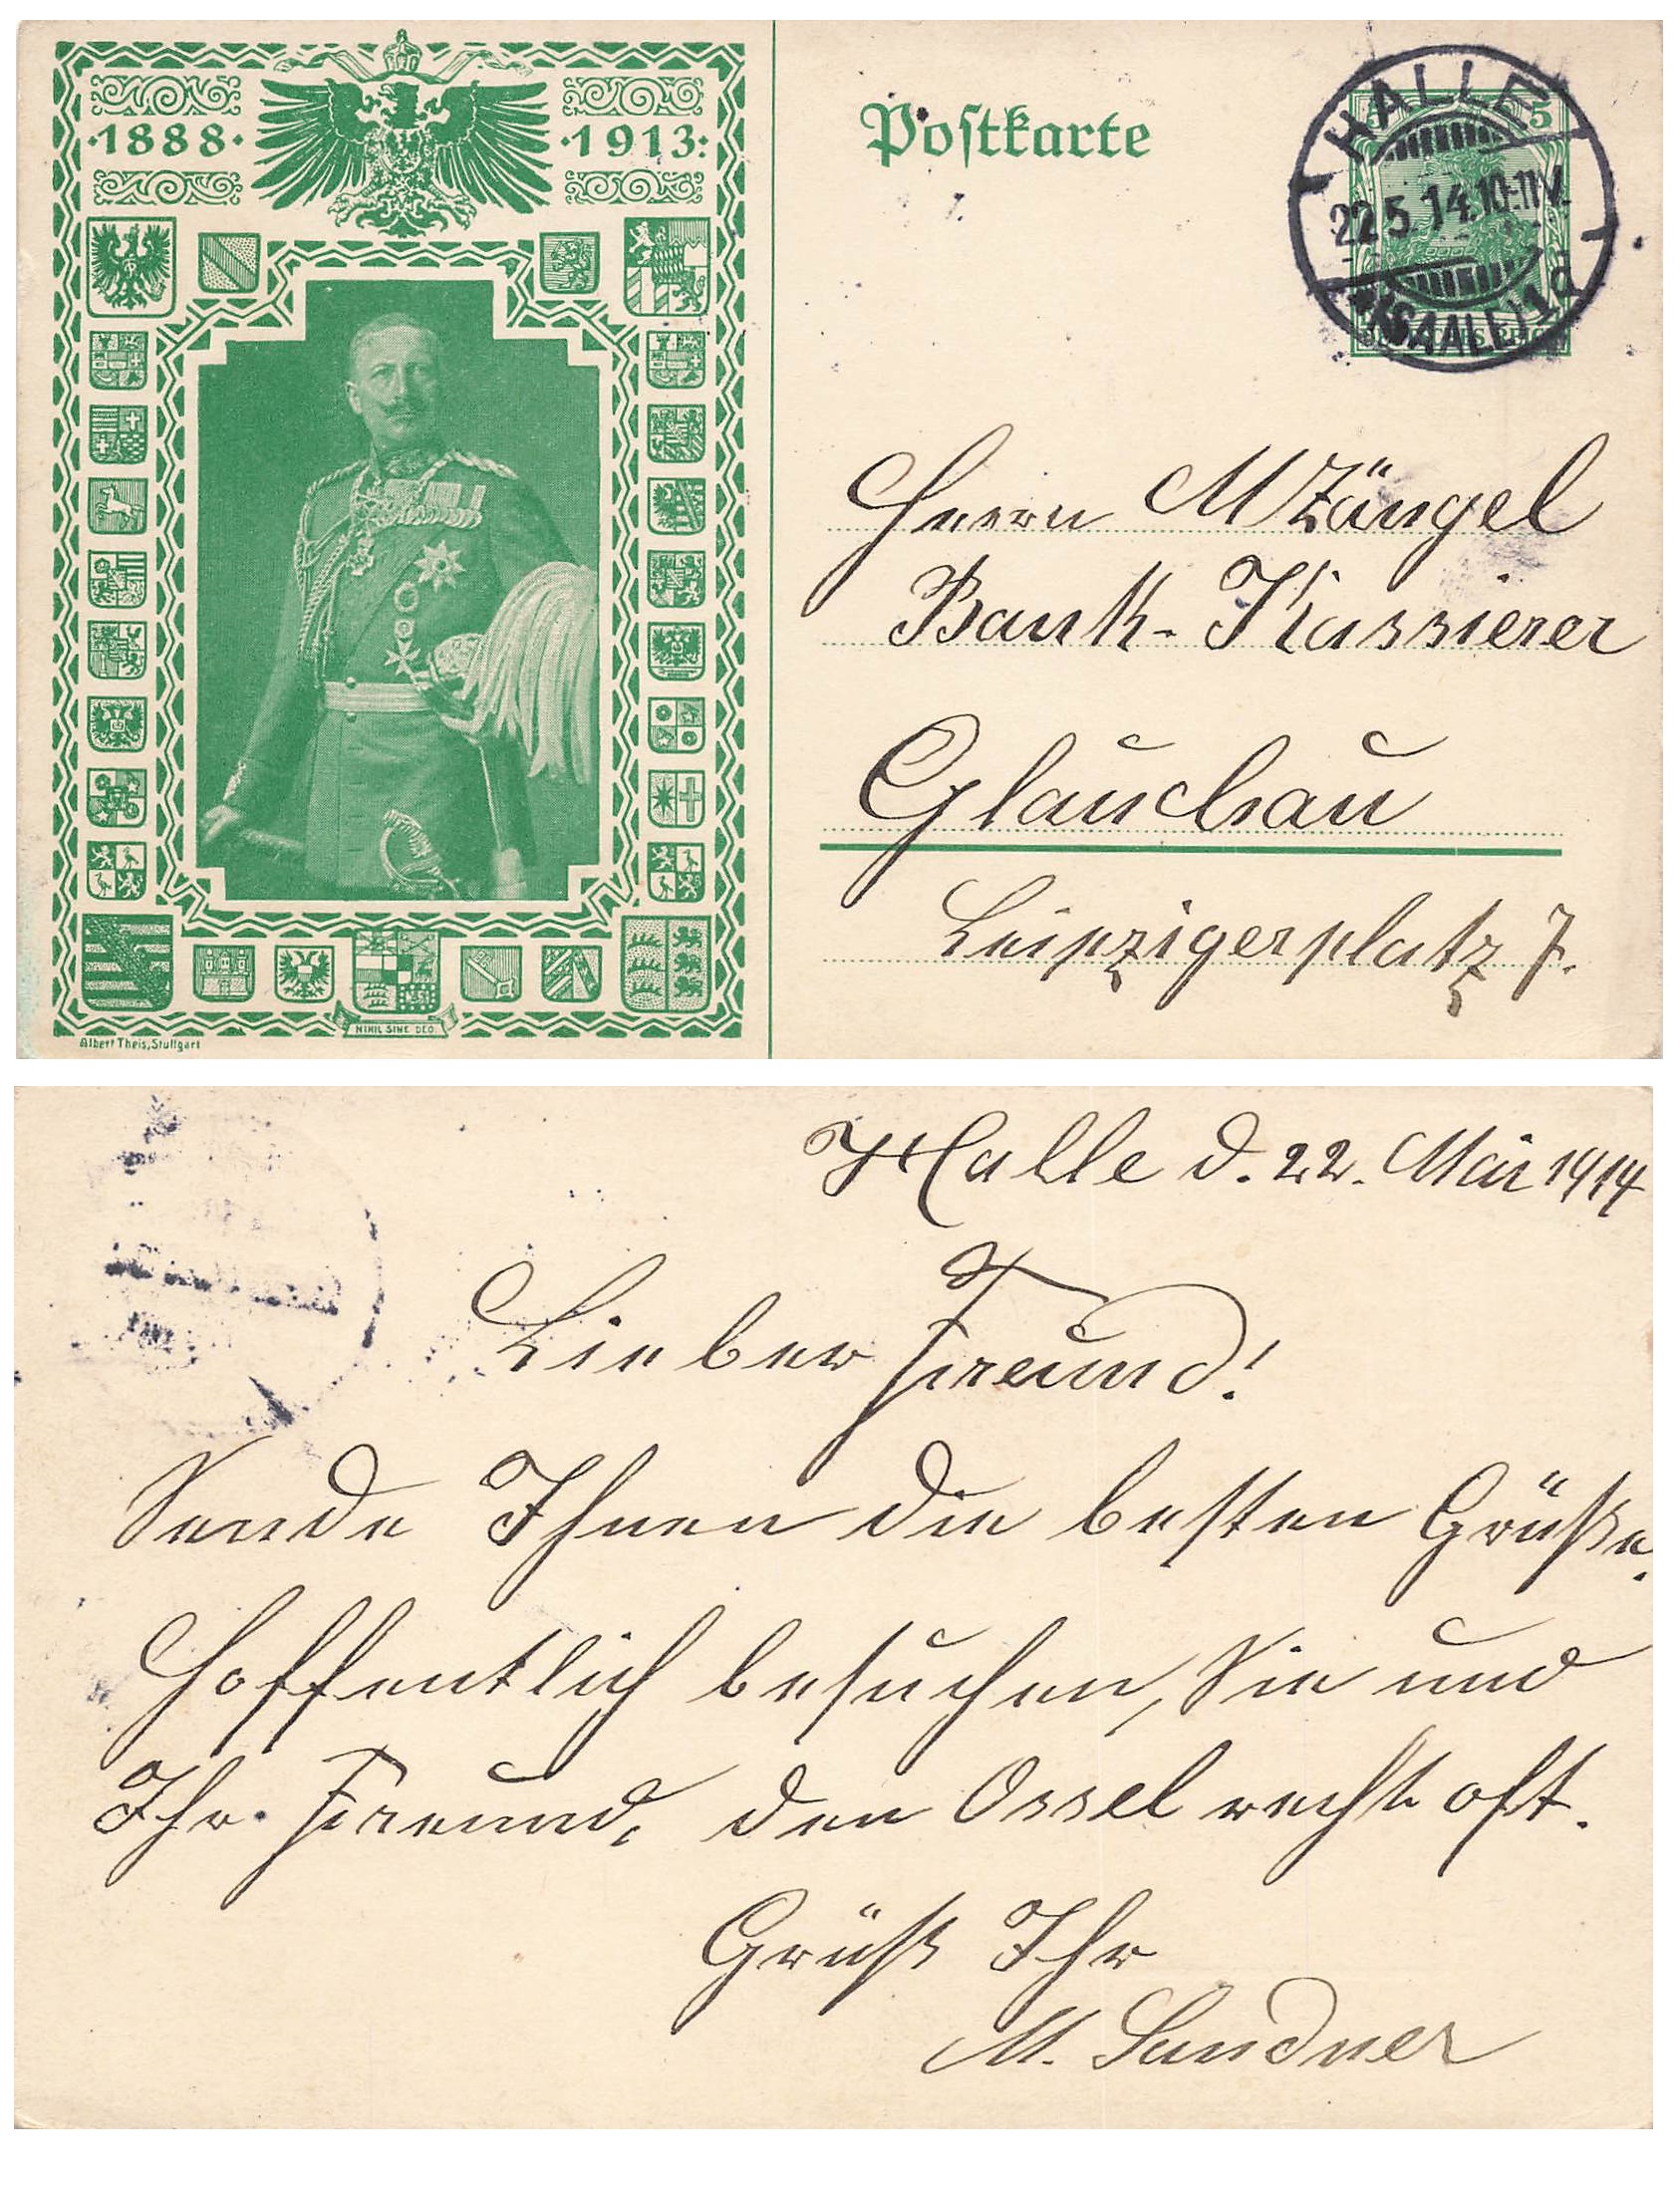 ·1888· ·1913:
NIHIL SINE DEO
Albert Theis, Stuttgart
Postkarte
5 5
HALLE
22.5.14.10-11V.
*(SAALE)1d
Herrn M Zängel
Bank-Kassierer
Glauchau
Leipzigerplatz 7.
Halle d. 22. Mai 1914
Lieber Freund!
Sende Ihnen die besten Grüße.
Hoffentlich besuchen, Sie und
Ihr. Freund, den Ossel recht oft.
Grüßt Ihr
M. Sandner